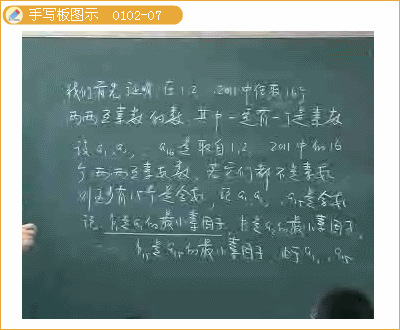 手写板图示 0102-07
我们首先证明,在1,2,…,2011中任取16个
两两互素的数,其中一定有一个是素数
设a₁,a₂,…a₁₆是取自1,2,…2011中的16
个两两互素数,若它们都不是素数
则至少有15个是合数,设a₁,a₂,…,a₁₅是合数
设P₁是a₁的最小素因子,P₂是a₂的最小素因子,
…P₁₅是a₁₅的最小素因子,由于a₁,…,a₁₅